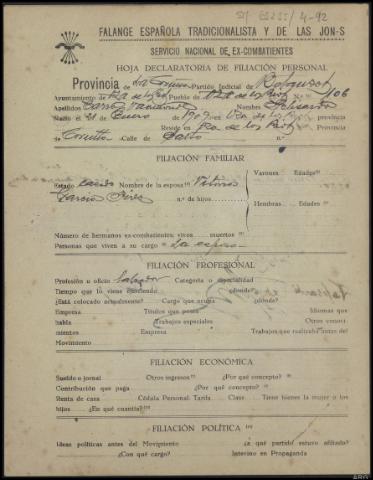 4-92
FALANGE ESPAÑOLA TRADICIONALISTA Y DE LAS JON-S
SERVICIO NACIONAL DE EX-COMBATIENTES
HOJA DECLARATORIA DE FILIACIÓN PERSONAL
Provincia de La Coruña Partido Judicial de Betanzos
Ayuntamiento de Pueblo de N.º 106
Apellidos Nombre Eduardo
Nació el 21 de Enero de 1909 en provincia
de Coruña Reside en
Calle de n.º
FILIACIÓN FAMILIAR
Estado casado Nombre de la esposa Varones Edades
García n.º de hijos Hembras Edades
Número de hermanos ex-combatientes: viven muertos
Personas que viven a su cargo La esposa
FILIACIÓN PROFESIONAL
Profesión u oficio Labrador Categoría o especialidad
Tiempo que lo viene ejerciendo ¿dónde?
¿Está colocado actualmente? Cargo que ocupa ¿dónde?
Empresa Títulos que posee Idiomas que
habla Trabajos especiales Otros conoci-
mientos Empresa Trabajos que realizaba antes del
Movimiento
FILIACIÓN ECONÓMICA
Sueldo o jornal Otros ingresos ¿Por qué concepto?
Contribución que paga ¿Por qué concepto?
Renta de casa Cédula Personal: Tarifa Clase Tiene bienes la mujer o los
hijos ¿En qué cuantía?
FILIACIÓN POLÍTICA
Ideas políticas antes del Movimiento ¿a qué partido estuvo afiliado?
¿Con qué cargo? Intervino en Propaganda